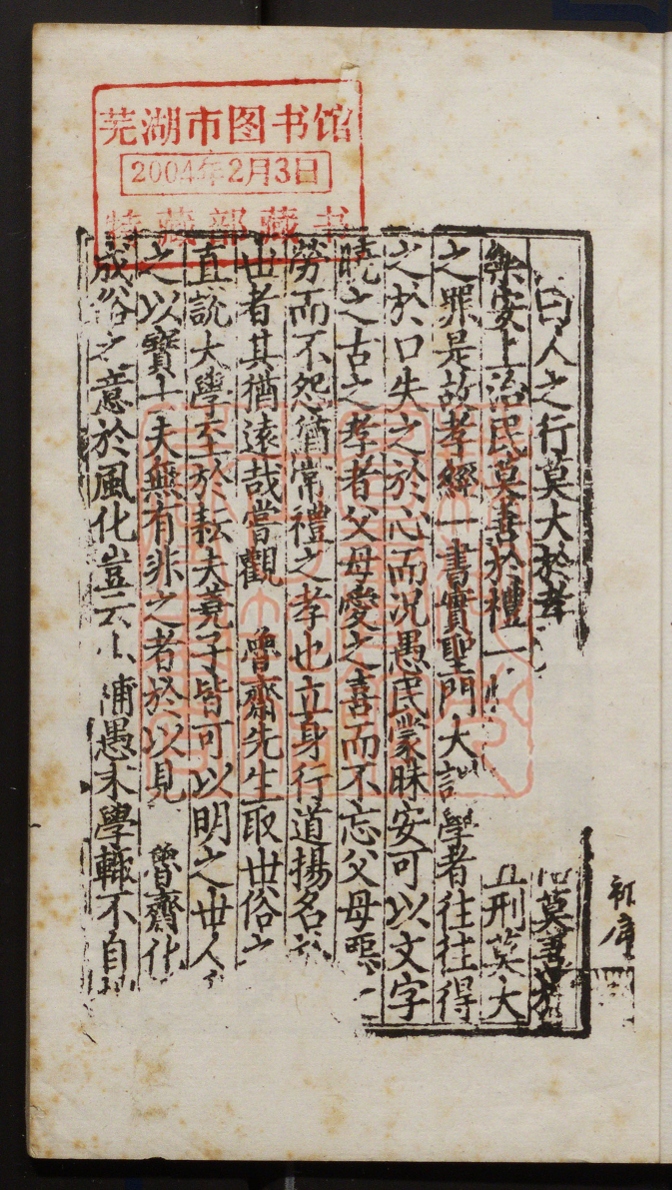 芜湖市图书馆
2004年2月3日
特藏部藏书
曰人之行莫大於孝 莫善於
樂安上治民莫善於禮一 五刑莫大
之罪是故孝經一書實聖門大訓學者往往得
之於口失之於心而况愚民蒙昧安可以文字
曉之古之孝者父母愛之喜而不忘父母惡之
勞而不怨猶常禮之孝也立身行道揚名
也者其猶遠哉嘗觀 魯齋先生取世俗之
直說大學至於耘夫蕘子皆可以明之世人
之以寶士夫無有非之者於以見 魯齋化
成俗之意於風化豈云小 愚末學輙不自